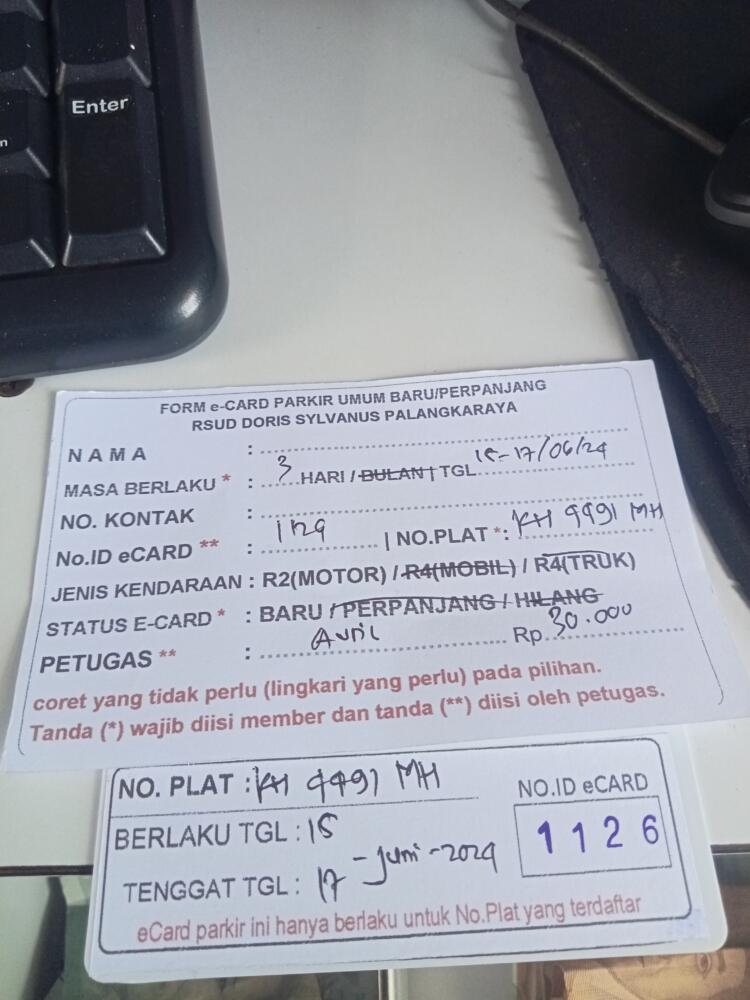 Enter
n
FORM e-CARD PARKIR UMUM BARU/PERPANJANG
RSUD DORIS SYLVANUS PALANGKARAYA
N A M A :
MASA BERLAKU * : 3 HARI / BULAN | TGL 15-17/06/24
NO. KONTAK :
No.ID eCARD ** : | NO.PLAT *: KH 4491 MH
JENIS KENDARAAN : R2(MOTOR) / R4(MOBIL) / R4(TRUK)
STATUS E-CARD * : BARU / PERPANJANG / HILANG
PETUGAS ** : Avril Rp. 30.000
coret yang tidak perlu (lingkari yang perlu) pada pilihan.
Tanda (*) wajib diisi member dan tanda (**) diisi oleh petugas.
NO. PLAT : KH 4491 MH
NO.ID eCARD
BERLAKU TGL : 15
1 1 2 6
TENGGAT TGL : 17 - Juni - 2024
eCard parkir ini hanya berlaku untuk No.Plat yang terdaftar